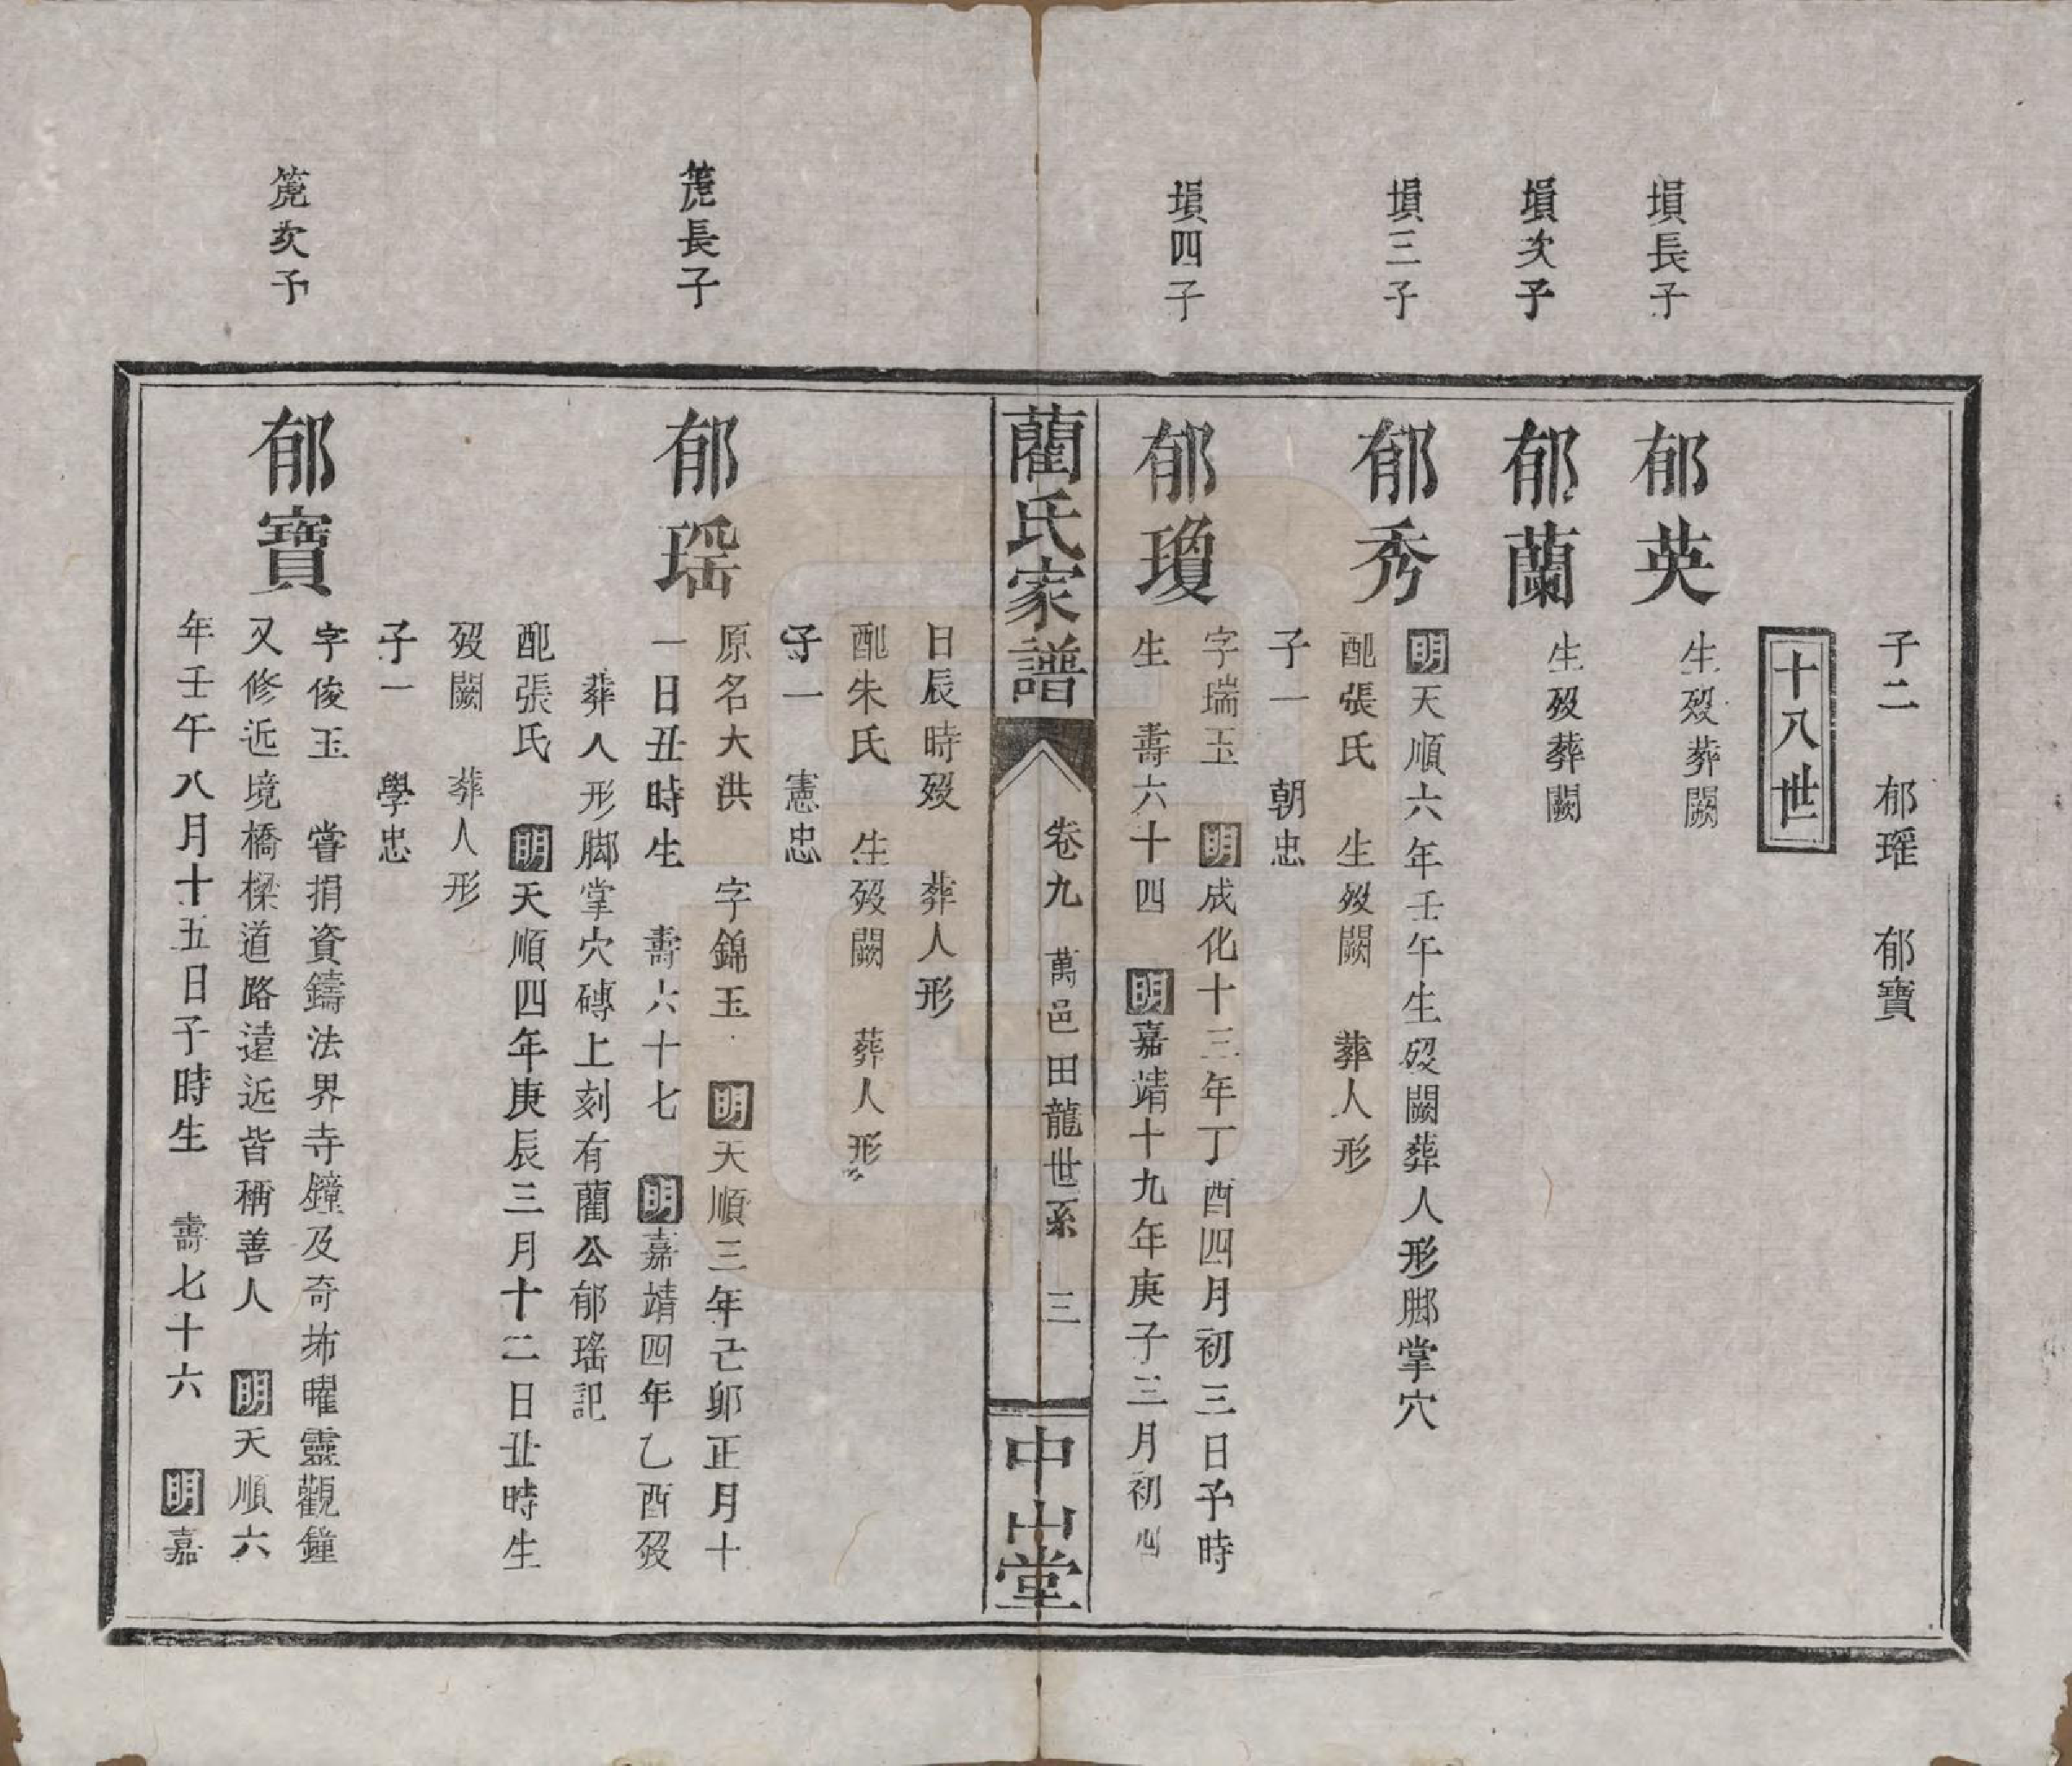 子二　郁瑤　郁寶
十八世
塤長子
郁英
生歿葬闕
塤次子
郁蘭
生歿葬闕
塤三子
郁秀
明天順六年壬午生歿闕葬人形脚掌穴
配張氏　生歿闕　葬人形
子一　朝忠
塤四子
郁瓊
字瑞玉　明成化十三年丁酉四月初三日子時
生　壽六十四　明嘉靖十九年庚子三月初四
藺氏家譜
卷九　萬邑田龍世系　三
中山堂
日辰時歿　葬人形
配朱氏　生歿闕　葬人形
子一　憲忠
篪長子
郁瑶
原名大洪　字錦玉　明天順三年己卯正月十
一日丑時生　壽六十七　明嘉靖四年乙酉歿
葬人形脚掌穴磚上刻有藺公郁瑤記
配張氏　明天順四年庚辰三月十二日丑時生
歿闕　葬人形
子一　學忠
篪次子
郁寶
字俊玉　嘗捐資鑄法界寺鐘及奇埗曜靈觀鐘
又修近境橋樑道路遠近皆稱善人　明天順六
年壬午八月十五日子時生　壽七十六　明嘉